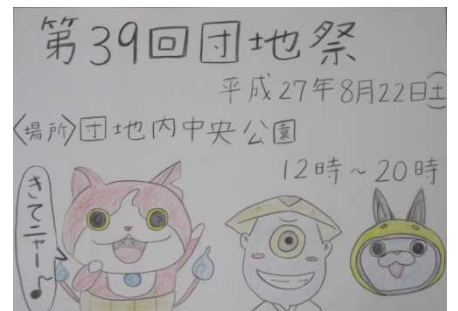 第39回団地祭
平成27年8月22日(土)
〈場所〉団地内中央公園
12時～20時
きてニャー～♪